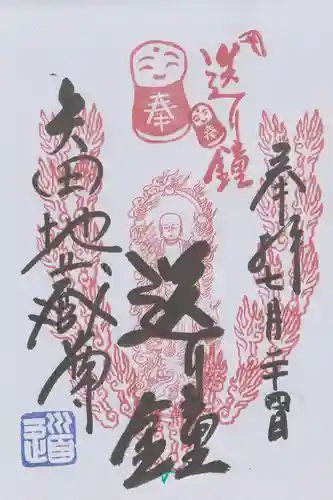 奉拝
七月二十四日
送り鐘
送り鐘
奉
奉
矢田地蔵尊